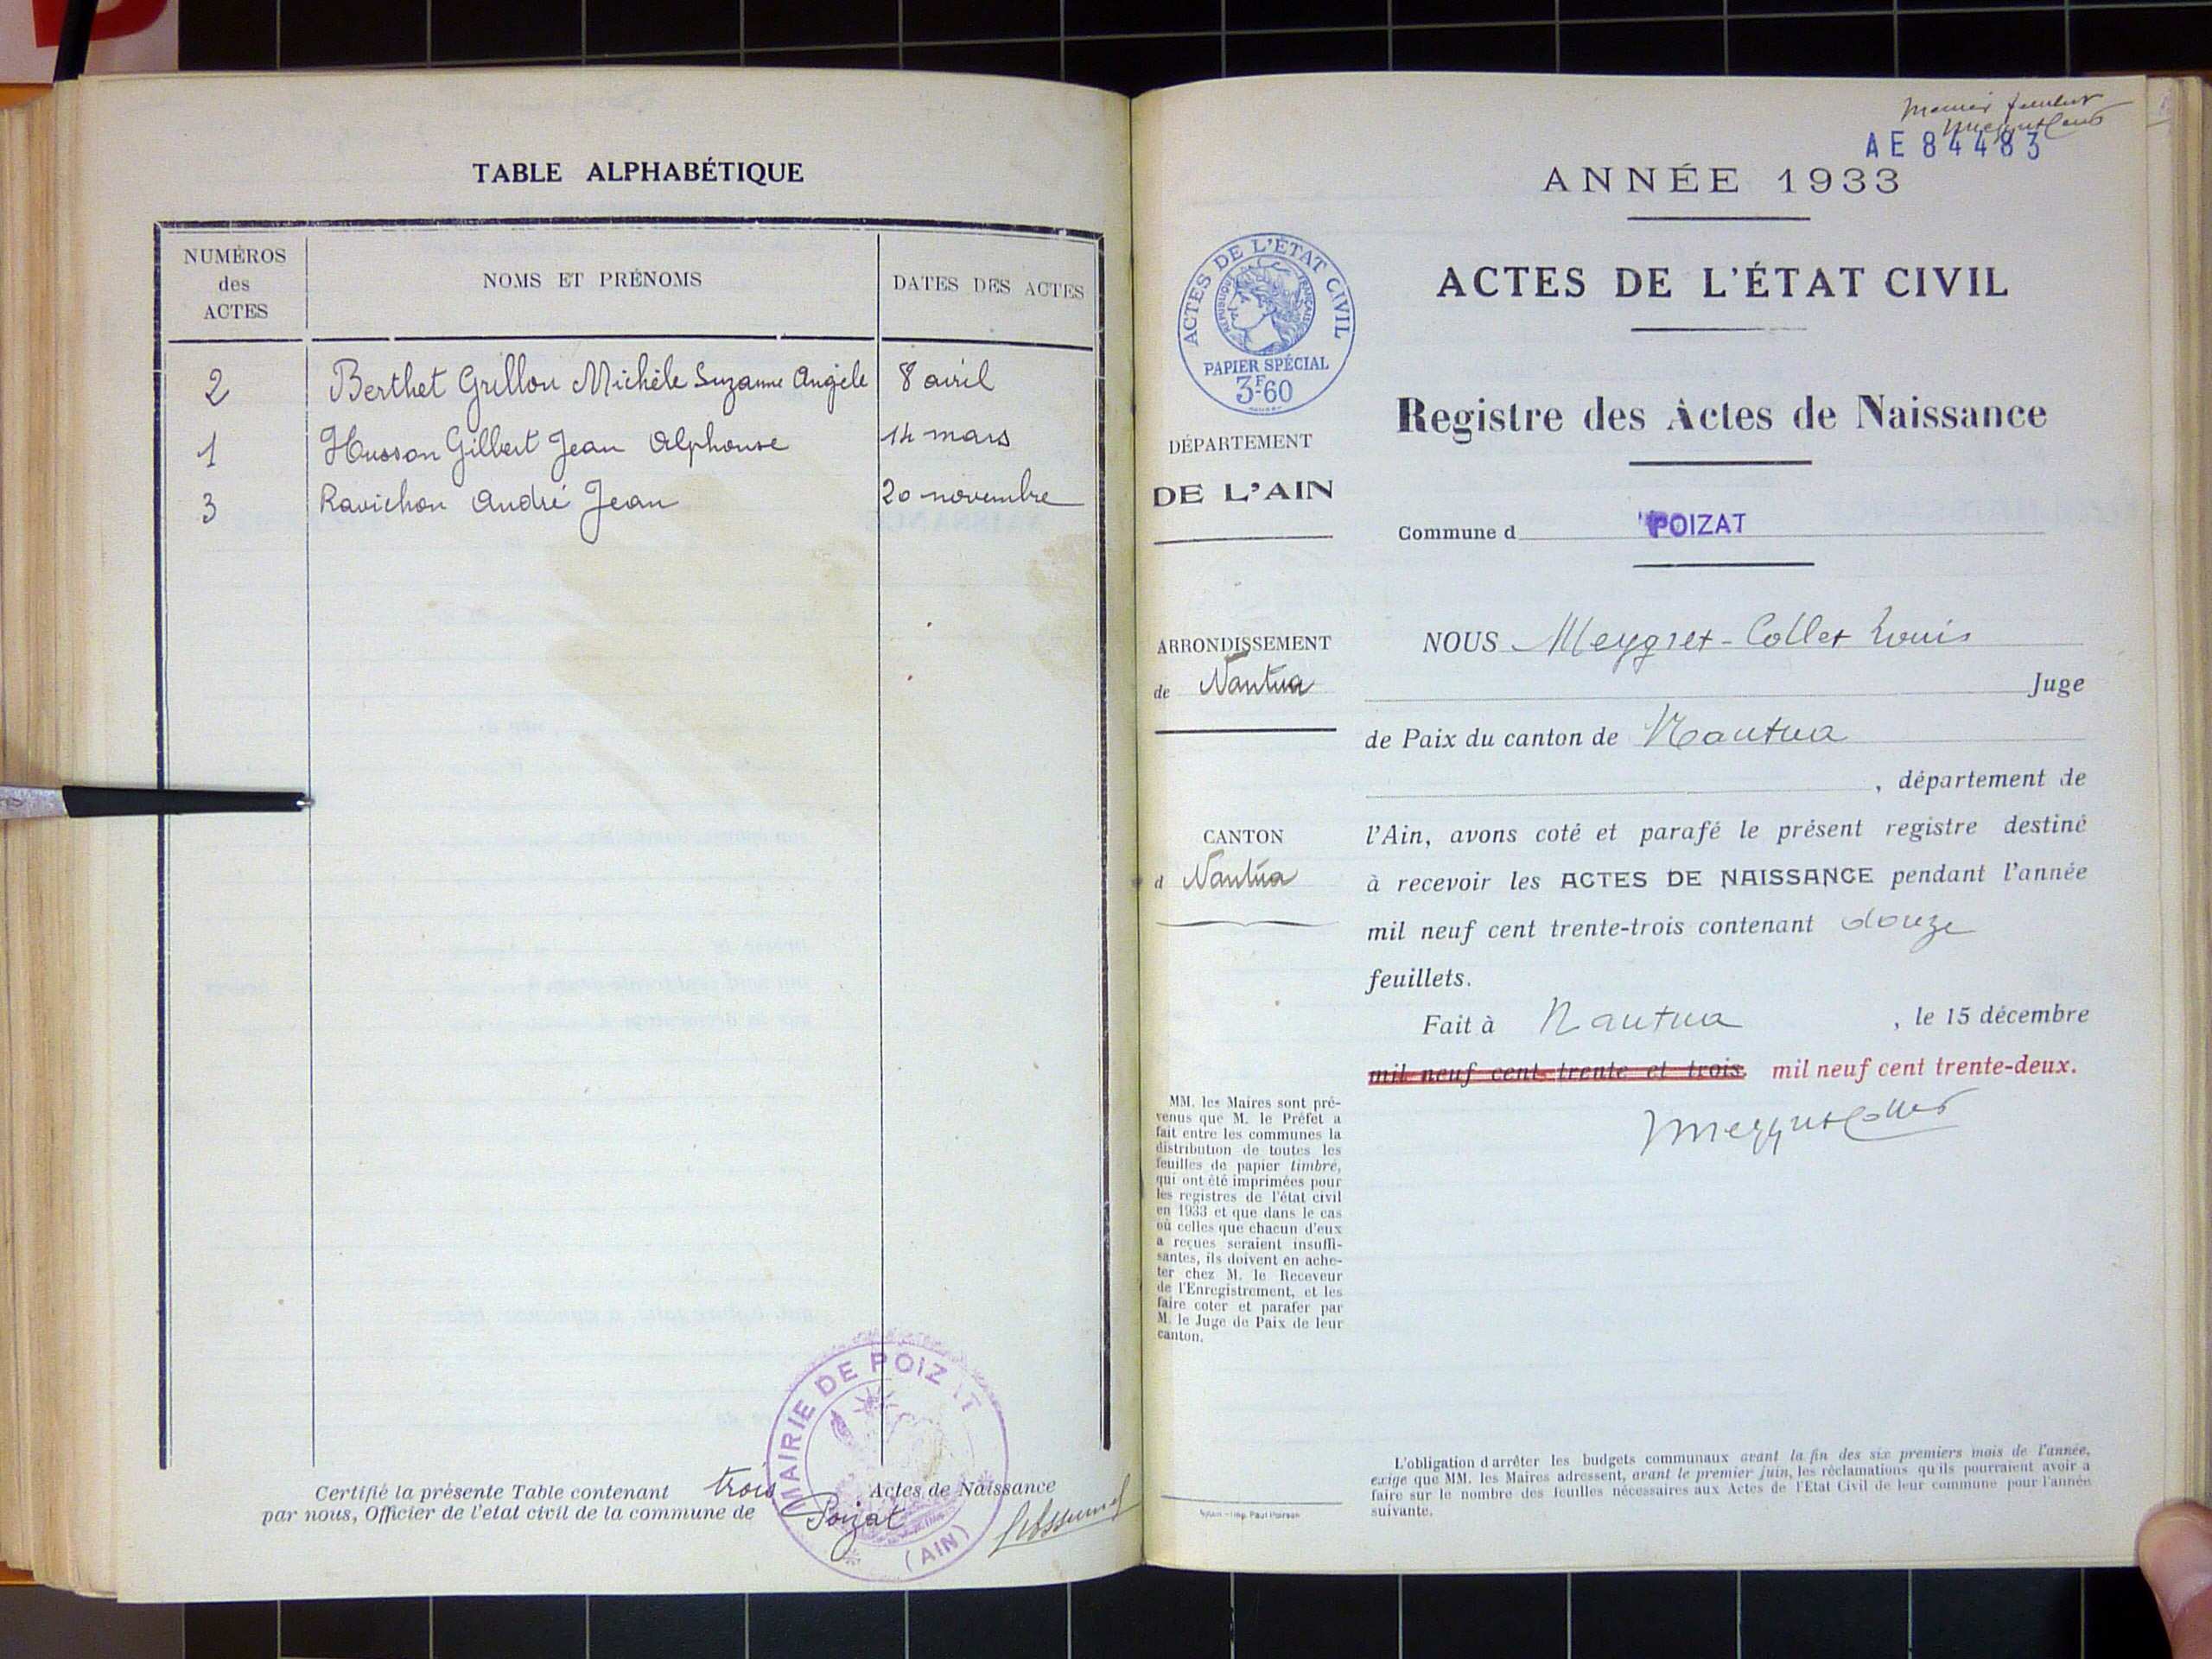 TABLE ALPHABÉTIQUE
NUMÉROS
des
ACTES
NOMS ET PRÉNOMS
DATES DES ACTES
2 Berthet Grillon Michèle Suzanne Angèle 8 avril
1 Husson Gilbert Jean Alphonse 14 mars
3 Ravichon André Jean 20 novembre
Certifié la présente Table contenant trois Actes de Naissance
par nous, Officier de l'etat civil de la commune de Poizat
MAIRIE DE POIZAT
(AIN)
AE 84483
ANNÉE 1933
ACTES DE L'ÉTAT CIVIL
RÉPUBLIQUE FRANÇAISE
PAPIER SPÉCIAL
3F60
ACTES DE L'ÉTAT CIVIL
Registre des Actes de Naissance
DÉPARTEMENT
DE L'AIN
Commune d POIZAT
ARRONDISSEMENT
de Nantua
CANTON
d Nantua
NOUS Meygret-Collet Louis
Juge
de Paix du canton de Nantua
, département de
l'Ain, avons coté et parafé le présent registre destiné
à recevoir les ACTES DE NAISSANCE pendant l'année
mil neuf cent trente-trois contenant douze
feuillets.
Fait à Nantua , le 15 décembre
mil neuf cent trente et trois. mil neuf cent trente-deux.
MeygretCollet
MM. les Maires sont pré-
venus que M. le Préfet a
fait entre les communes la
distribution de toutes les
feuilles de papier timbré,
qui ont été imprimées pour
les registres de l'état civil
en 1933 et que dans le cas
où celles que chacun d'eux
a reçues seraient insuffi-
santes, ils doivent en ache-
ter chez M. le Receveur
de l'Enregistrement, et les
faire coter et parafer par
M. le Juge de Paix de leur
canton.
L'obligation d'arrêter les budgets communaux avant la fin des six premiers mois de l'année,
exige que MM. les Maires adressent, avant le premier juin, les réclamations qu'ils pourraient avoir à
faire sur le nombre des feuilles nécessaires aux Actes de l'Etat Civil de leur commune pour l'année
suivante.